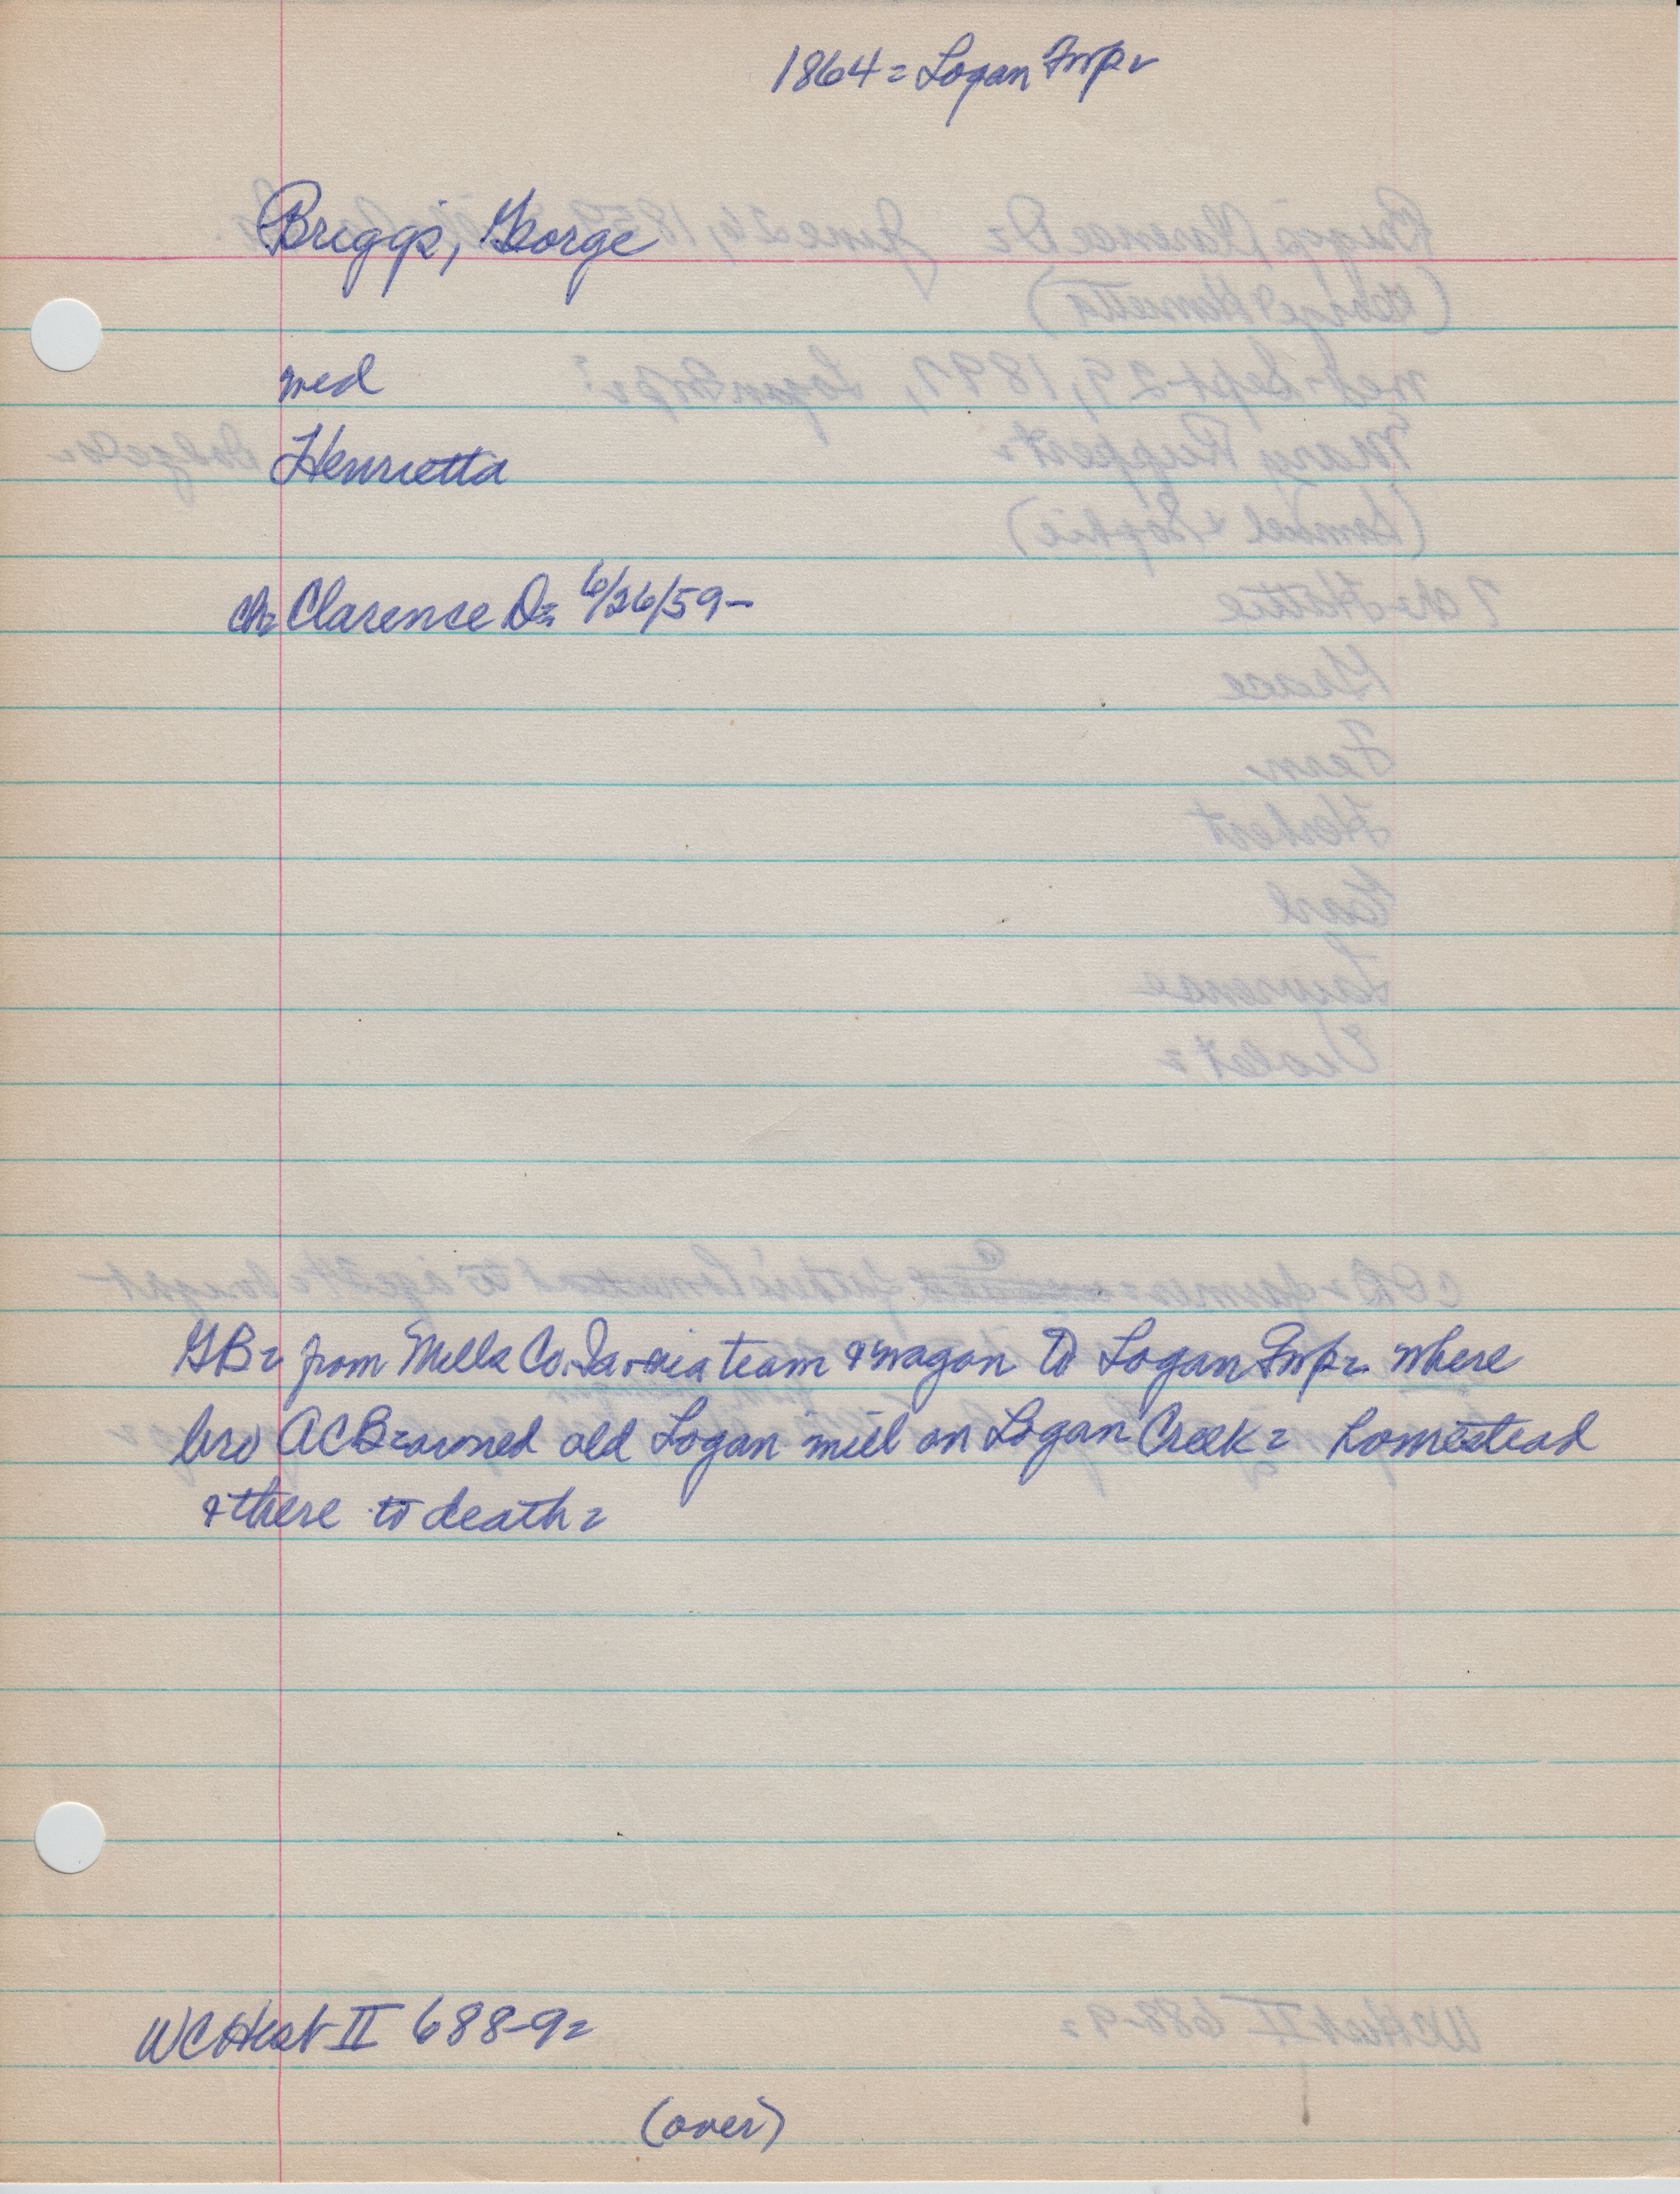 1864 = Logan Twp =
Briggs, George
med
Henrietta
ch = Clarence D = 6/26/59 -
GB = from Mills Co. Ia. via team & wagon to Logan Twp = where
bro ACB = owned old Logan mill on Logan Creek = homestead
& there to death =
WCHist II 688-9 =
(over)